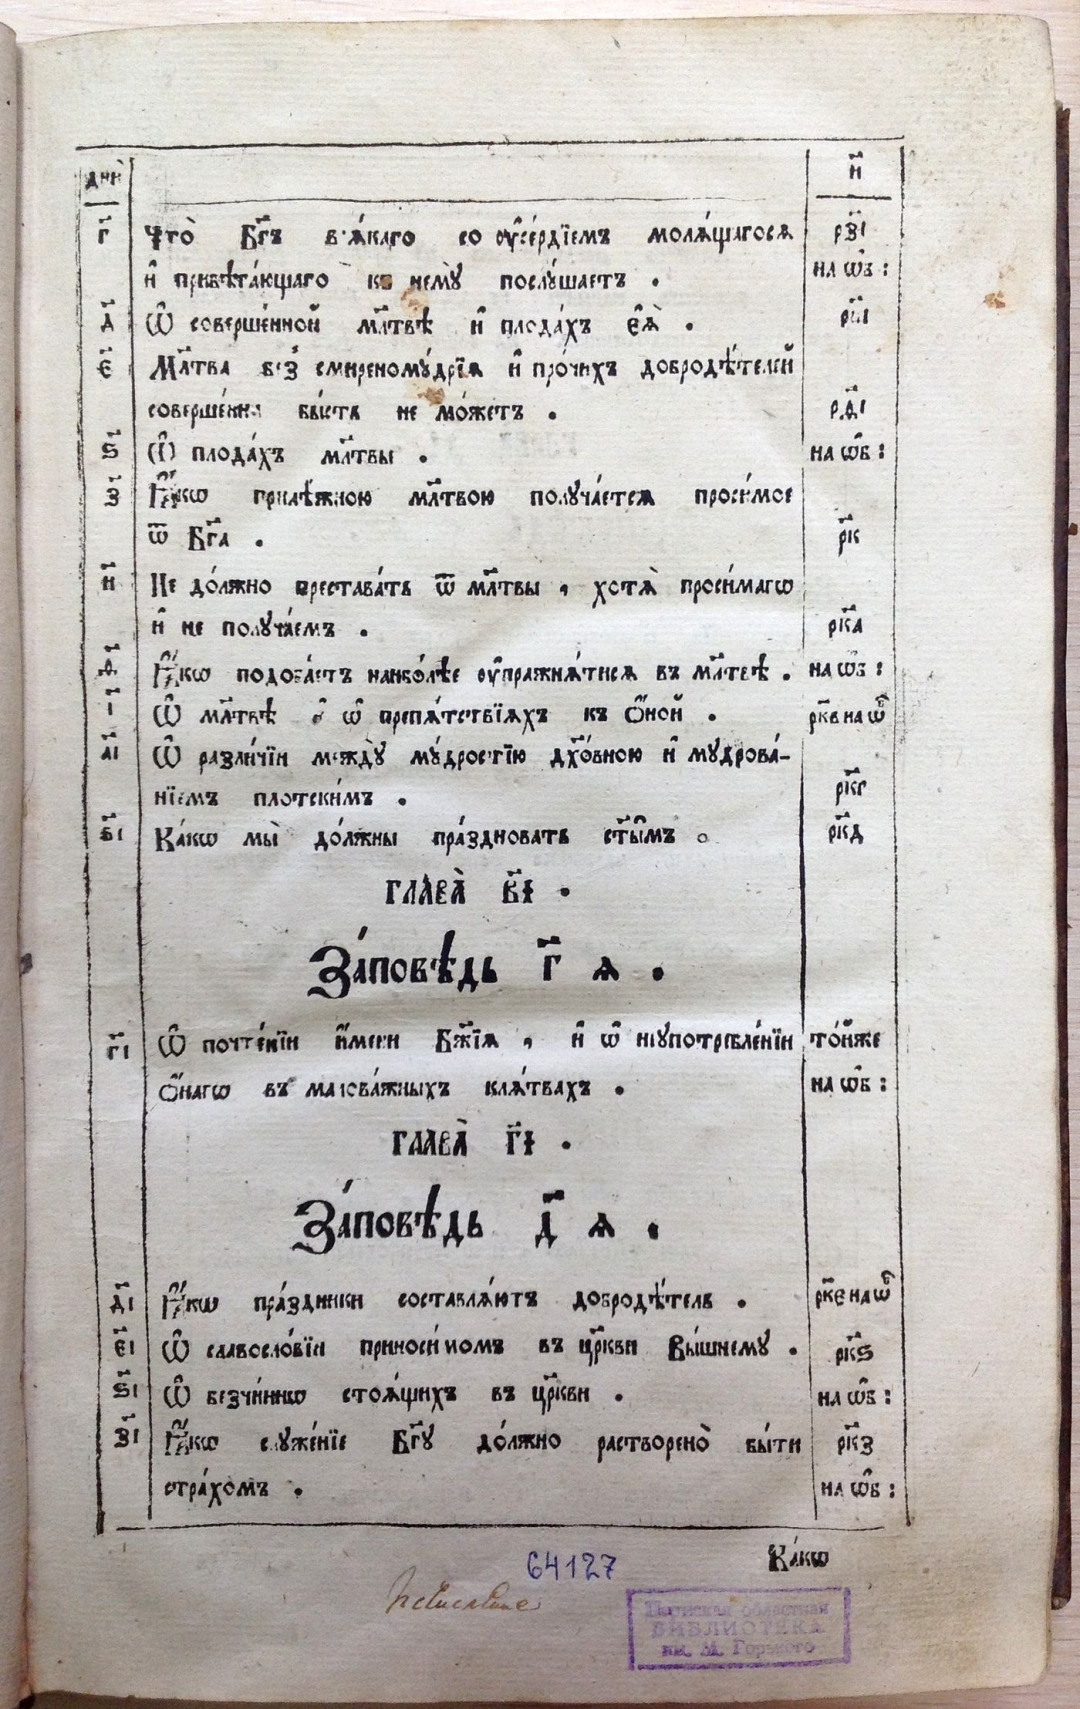 дни̑ и҃
г҃ Что̀ Бг҃ъ вся́каго со ᲂу҆се́рдїемъ моля́щагося рз҃і
и҆ привѣта́ющаго къ немꙋ̀ послꙋ́шаетъ . на ѡ҆б :
д҃ Ѡ҆ соверше́нной мл҃твѣ и҆ плода́хъ є҆ѧ̀ . ри҃і
є҃ Мл҃тва без̾ смиреномꙋ́дрїѧ и҆ про́чихъ добродѣ́телей
соверше́нна бы́сть не мо́жетъ . рѳ҃і
ѕ҃ Ѡ҆ плода́хъ мл҃твы . на ѡ҆б :
з҃ Ꙗ҆́кѡ прилѣ́жною мл҃твою полꙋча́етсѧ проси́мое
ѿ Бг҃а . рк҃
и҃ Не до́лжно преставать ѿ мл҃твы , хотѧ̀ проси́магѡ
и҆ не полꙋча́емъ . рк҃а
ѳ҃ Ꙗ҆́кѡ подоба́етъ наибо́лѣе ᲂу҆пражнѧ́тисѧ въ мл҃твѣ . на ѡ҆б :
і҃ Ѡ҆ мл҃твѣ и҆ ѡ҆ препѧ́тствїѧхъ къ ѻ҆́ной . рк҃в на ѡ҆б
а҃і Ѡ҆ разли́чїи междꙋ̀ мꙋ́дростїю дꙋх҃о́вною и҆ мꙋдрова́-
нїемъ плотски́мъ . рк҃г
в҃і Ка́кѡ мы̀ до́лжны пра́здновать ст҃ы̑мъ . рк҃д
глава̀ в҃і .
За́повѣдь г҃ ѧ .
г҃і Ѡ҆ почте́нїи и҆́мени Бж҃їѧ , и҆ ѡ҆ неупотребле́нїи то́йже
ѻ҆́нагѡ въ малова́жныхъ клѧ́твахъ . на ѡ҆б :
глава̀ г҃і .
За́повѣдь д҃ ѧ .
д҃і Ꙗ҆́кѡ пра́здники составлѧ́ютъ добродѣ́тель . рк҃є на ѡ҆б
є҃і Ѡ҆ славосло́вїи приноси́момъ въ цр҃кви Вы́шнемꙋ . рк҃ѕ
ѕ҃і Ѡ҆ безчи́ннѡ стоѧ́щихъ въ цр҃кви . на ѡ҆б :
з҃і Ꙗ҆́кѡ слꙋже́нїе Бг҃ꙋ до́лжно растворено̀ бы́ти рк҃з
стра́хомъ . на ѡ҆б :
Ка́кѡ
64127
Пермская областная
БИБЛИОТЕКА
им. М. Горького